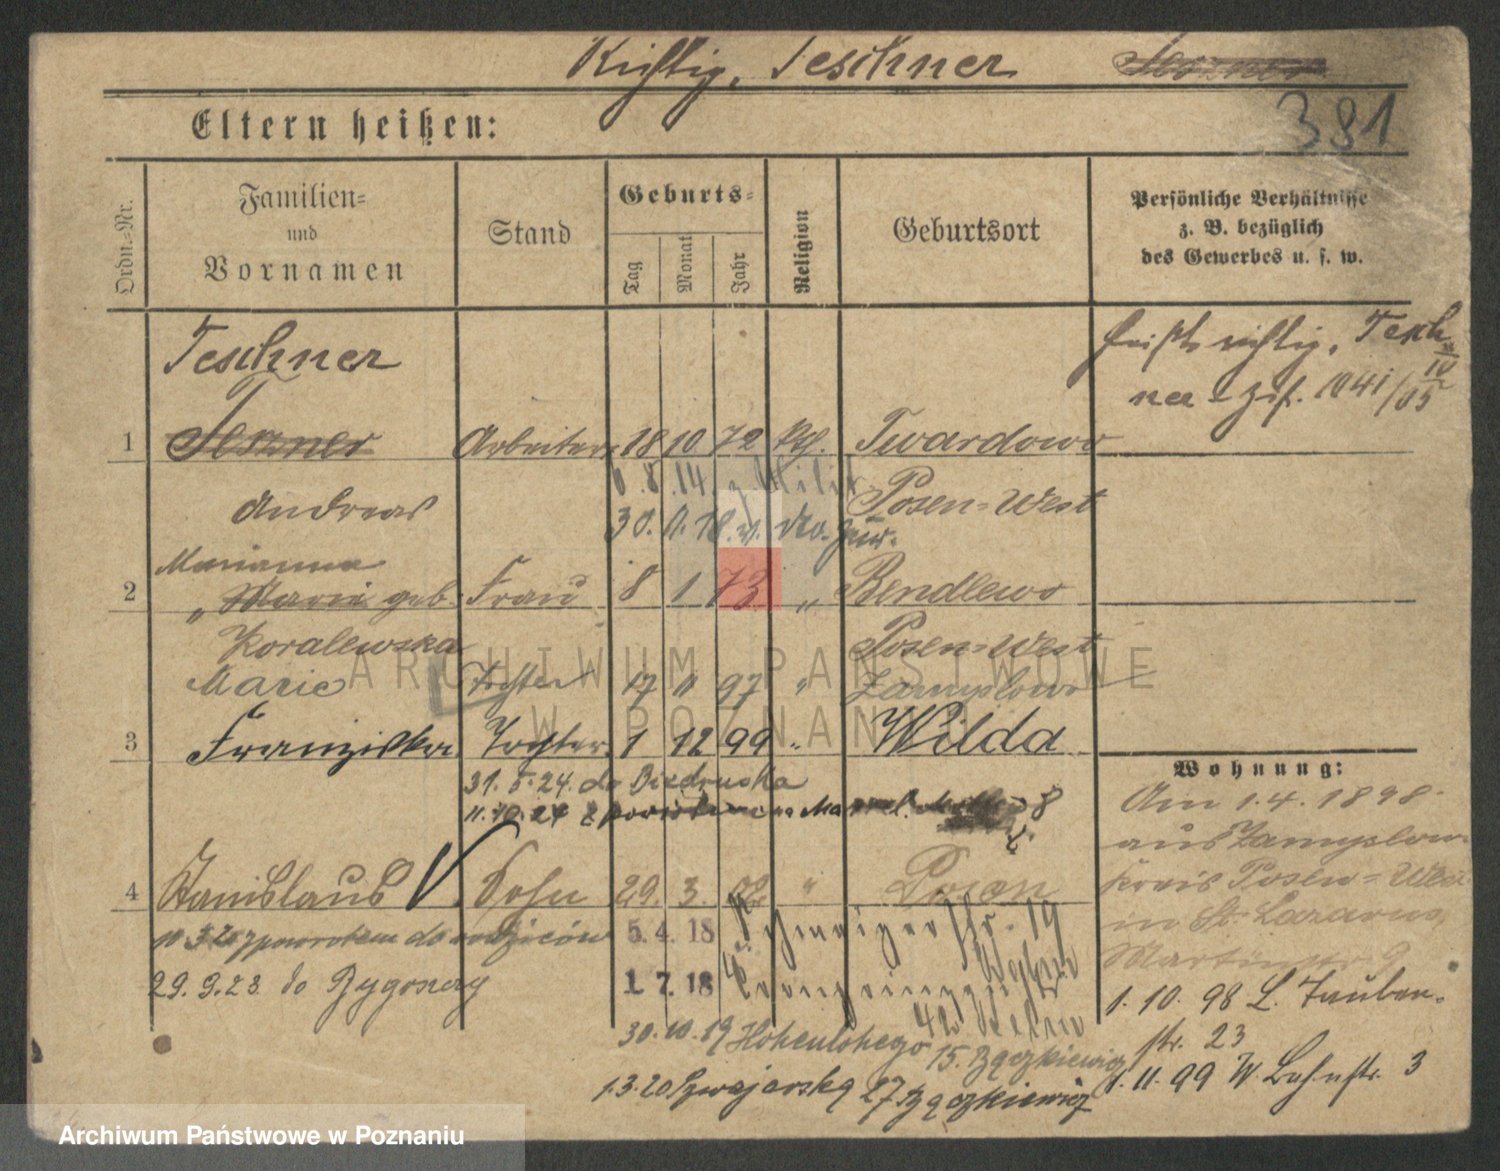 Richtig, Teschner Teszner
381
Eltern heißen:
Ordn.-Nr.
Familien-
und
Vornamen
Stand
Geburts-
Tag
Monat
Jahr
Religion
Geburtsort
Persönliche Verhältnisse
z. B. bezüglich
des Gewerbes u. s. w.
Teschner
heißt richtig, Tesch
ner - 1041/05
1 Teszner Arbeiter 18 10 72 kh. Twardowo
Andreas
6.8.14. z. Milit
Posen-West
30.11.18. v.
Marianna
2 " Marie geb. Frau 8 1 73 " Bendlewo
Koralewska
Posen-West
Marie Tochter 17 11 97 " Zamyslowo
3 Franziska Tochter 1 12 99 " Wilda
31.5.24. do Biedruska
11.10.24 z powrotem
Wohnung:
Am 1.4.1898
aus Zamyslowo
Kreis Posen-West
in St. Lazarus
Martinstr. 9
4 Stanislaus V Sohn 29. 3. 02 " Posen
10 3 20 z powrotem do rodziców
5. 4. 18 Str. 19
29.9.23 do Bygoszczy
1. 7. 18
42
1.10.98 L. Tauben-
str. 23
30.10.19 Hohenlohego 15. Bączkiewicz
1.11.99 W. Bahnstr. 3
1.3.20 Szwajcarska 27 Bączkiewicz
ARCHIWUM PAŃSTWOWE
W POZNANIU
Archiwum Państwowe w Poznaniu